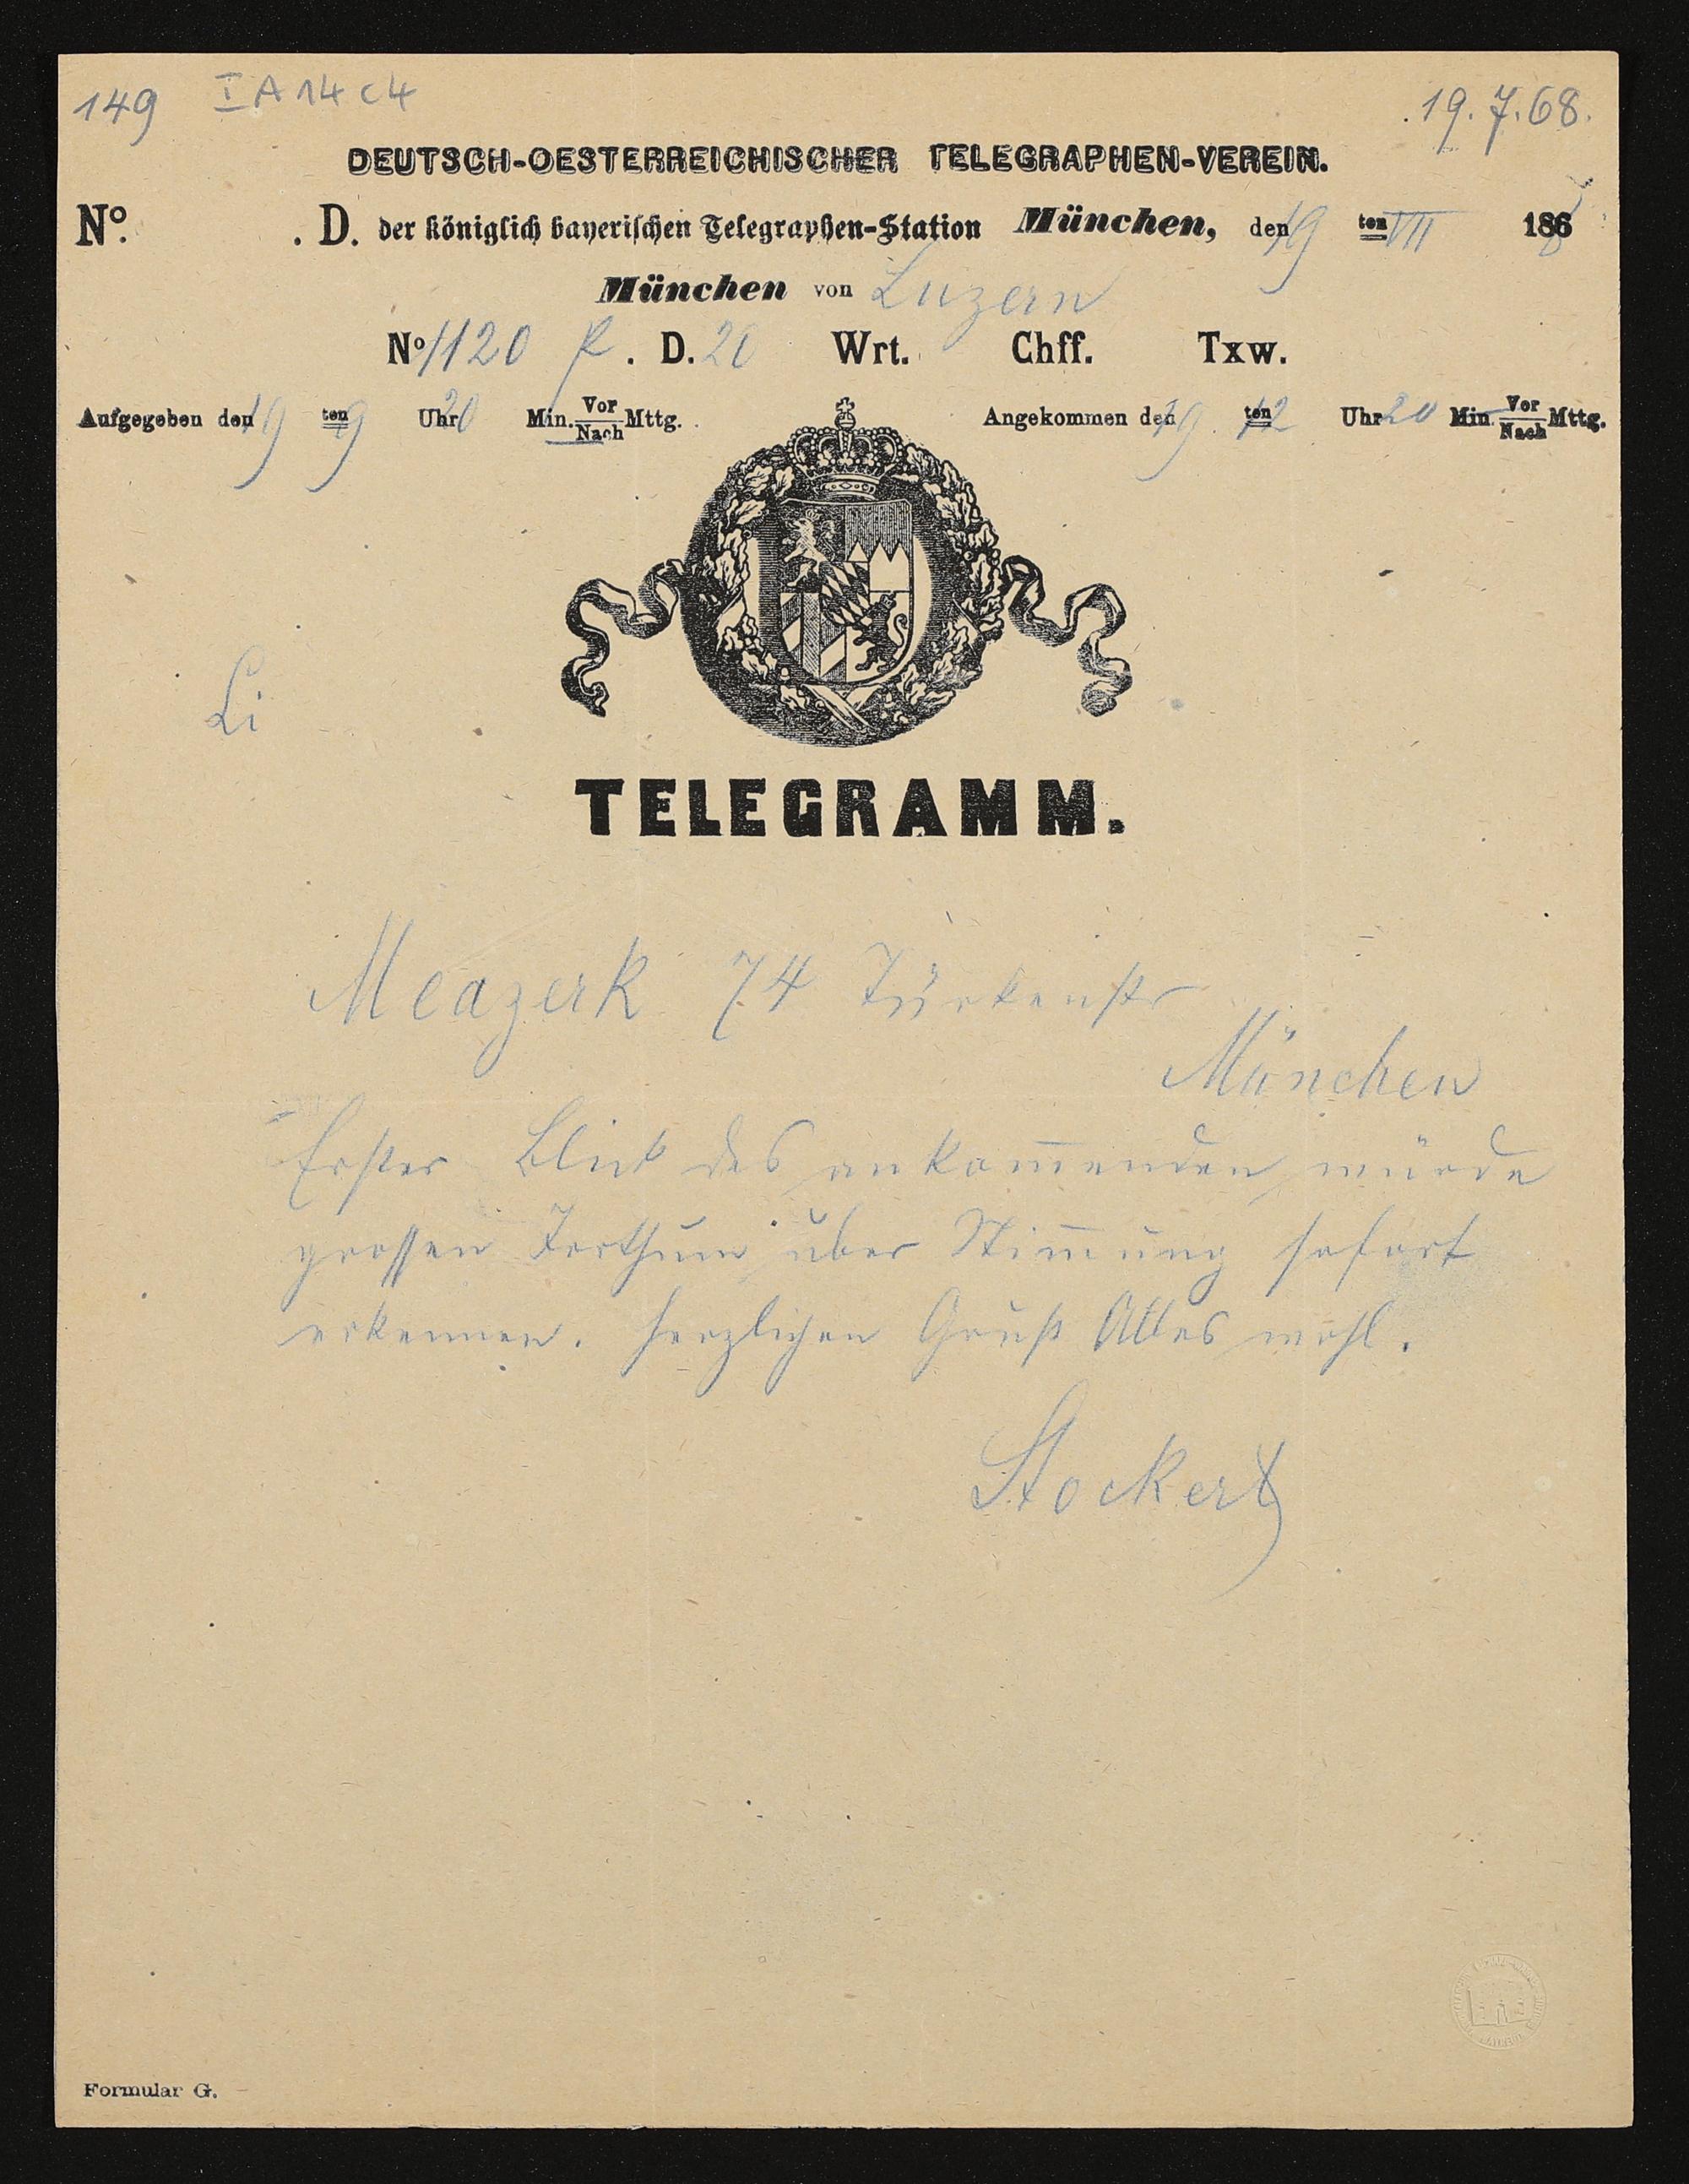 149 I A 14 c 4 19.7.68.
DEUTSCH-OESTERREICHISCHER TELEGRAPHEN-VEREIN.
No. . D. der königlich bayerischen Telegraphen-Station München, den 19 ten VII 1868
München von Luzern
No 1120 P. D. 20 Wrt. Chff. Txw.
Aufgegeben den 19 ten 9 Uhr 20 Min. Vor/Nach Mttg. Angekommen den 19. ten 12 Uhr 20 Min. Vor/Nach Mttg.
Li
TELEGRAMM.
Meazerk 74 Türkenstr
München
Erster Blick des ankom̅enden würde
grossen Irrthum über Stim̅ung sofort
erkennen. Herzlichen Gruß Alles wohl.
Stockert
Formular G.